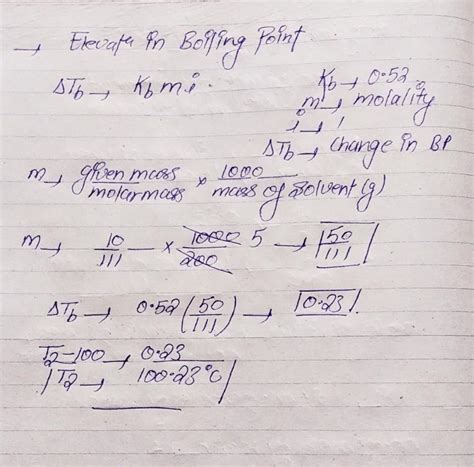 → Elevatn in Boiling Point.
ΔTb → Kb m.i.
Kb → 0.52
m → molality
i → 1
ΔTb → Change in BP
m → given mass/molarmass × 1000/mass of solvent (g)
m → 10/111 × 1000/200 5 → 50/111
ΔTb → 0.52 (50/111) → 0.23
T2-100 → 0.23
T2 → 100.23°C